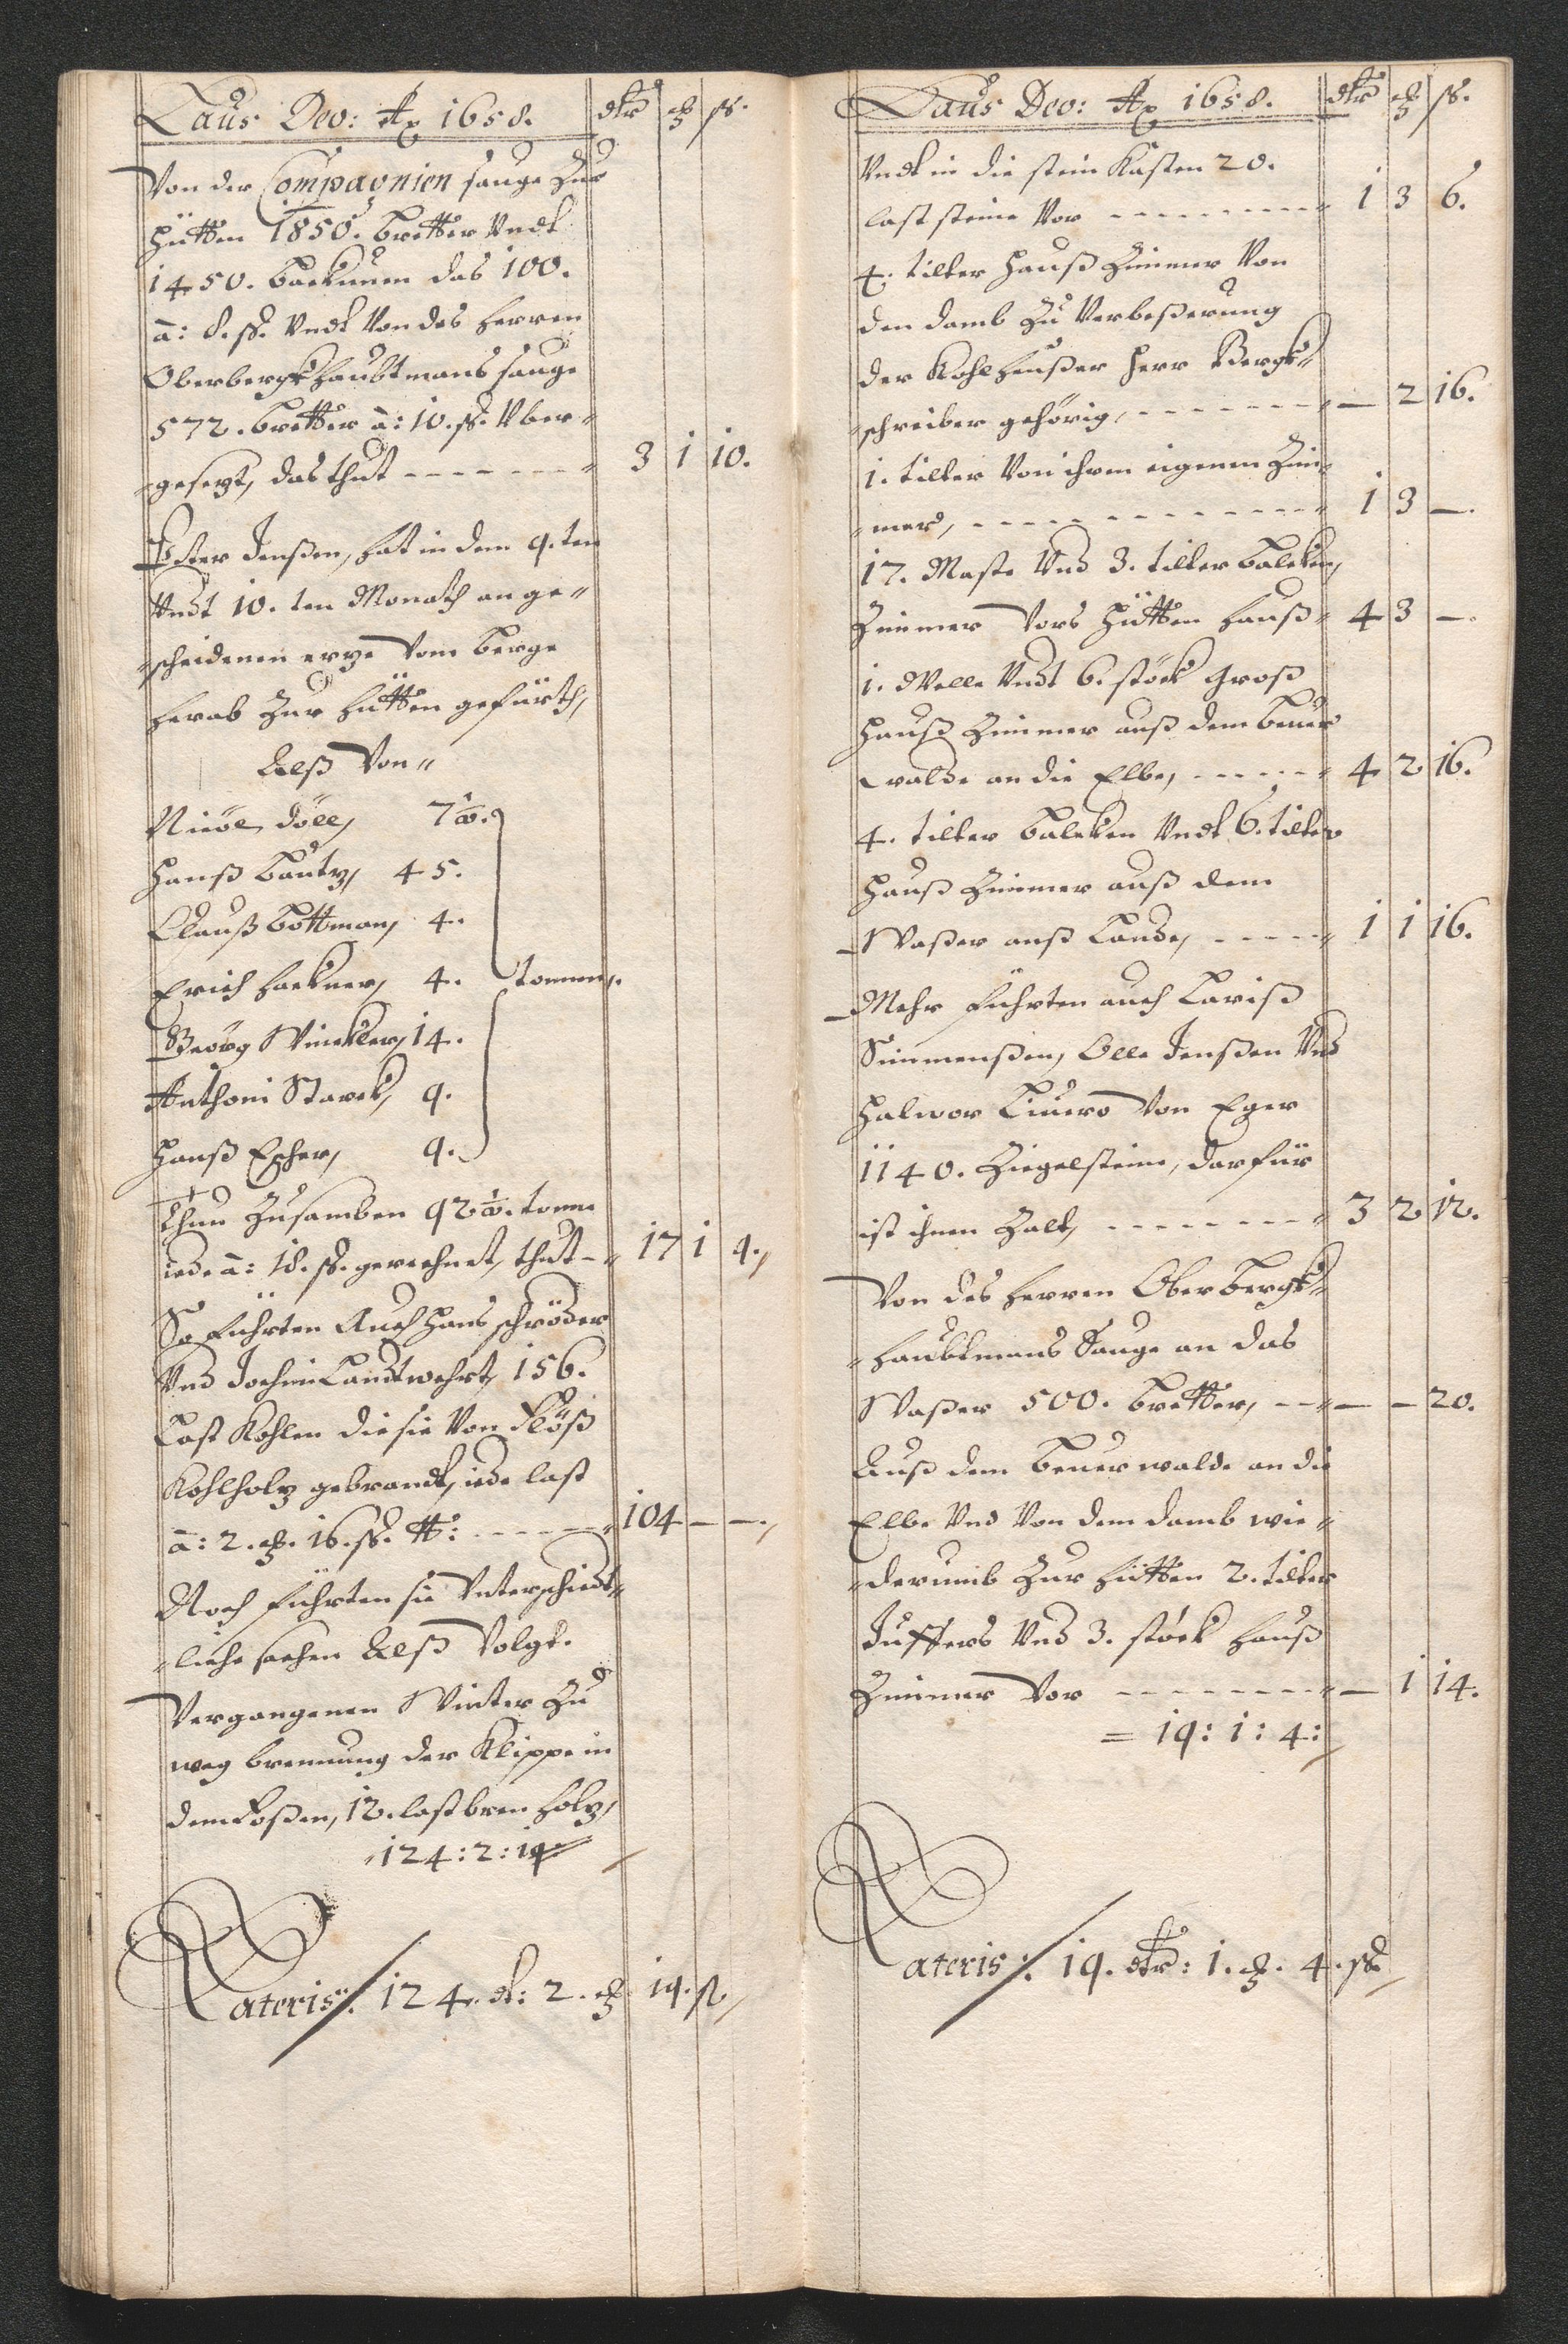 Laus Deo: Aō 1658. dlr ort ß.
Von der Compagnien sauge Zur
Hütten 1850. bretter Undt
1450. backunen das 100.
â: 8. ß. Undt Von des Herren
Oberbergkhaubtmans sauge
572. bretter â: 10. ß. Uber=
=gesezt, das thut - - - - - - - 3 1 10.
Peter Jenßen, hat in dem 9.ten
Undt 10.ten Monath an ge=
=scheidenen erze Vom berge
herab Zur hütten geführth,
Alß Von=
Nicol Döll, 7½.
Hanß Bautz, 45.
Clauß Bottman, 4.
Erich Hackner, 4. tonnen.
Georg Winckler, 14.
Anthoni Starck, 9.
Hanß Escher, 9.
Thun Zusamben 92½. tonne
iede â: 18. ß. gerechnet, thut - 17 1 9.
So führten Auch Hans schröder
Und Jochim Landtwehrt, 156.
Last Kohlen die sie Von Flöß
Kohlholz gebrandt, iede last
â: 2. ort. 16. ß. - - - - - 104 — —.
Noch führten sie Unterschiedt=
=liche sachen Alß Volgt.
Vergangenen Winter Zu
weg brennung der Klippe in
dem Foßen, 12. last bren holz,
124:2:19
Lateris:/. 124. dl: 2. ort 19. ß.
Laus Deo: Aō 1658. dlr ort ß.
Undt in die stein Kasten 20.
last steine Vor - - - - - - - - 1 3 6.
4. tilter Hauß Zimmer Von
den damb Zu Verbeßerung
der Kohlheußer Herr Bergk=
=schreiber gehörig, - - - - - - — 2 16.
1. tilter Von ihrem eigenen Zim=
=mer, - - - - - - - - - - - 1 3 —.
17. Maste Und 3. tilter balcken,
Zimmer Vors Hütten hauß= 4 3 —.
1. Welle Undt 6. stöck Groß
Hauß Zimmer auß dem beuer
walde an die Elbe, - - - - - 4 2 16.
4. tilter balcken Undt 6. tilter
Hauß Zimmer auß dem
Waßer anß Lande, - - - - - 1 1 16.
Mehr führten auch Lariß
Simmenßen, Olle Jenßen Und
Halwor Liuero Von Eger
1140. Ziegelsteine, darfür
ist ihnen Zalt, - - - - - - - - 3 2 12.
Von des Herren Ober Bergk=
=haubtmans Sauge an das
Waßer 500. bretter, - - — — 20.
Auß dem beuer walde an die
Elbe Und Von dem damb wie=
=derumb Zur hütten 2. tilter
Juffers Und 3. stöck hauß
Zimmer Vor - - - - - - - - - — 1 14.
= 19:1:4:
Lateris:/. 19. dlr: 1. ort. 4. ß.